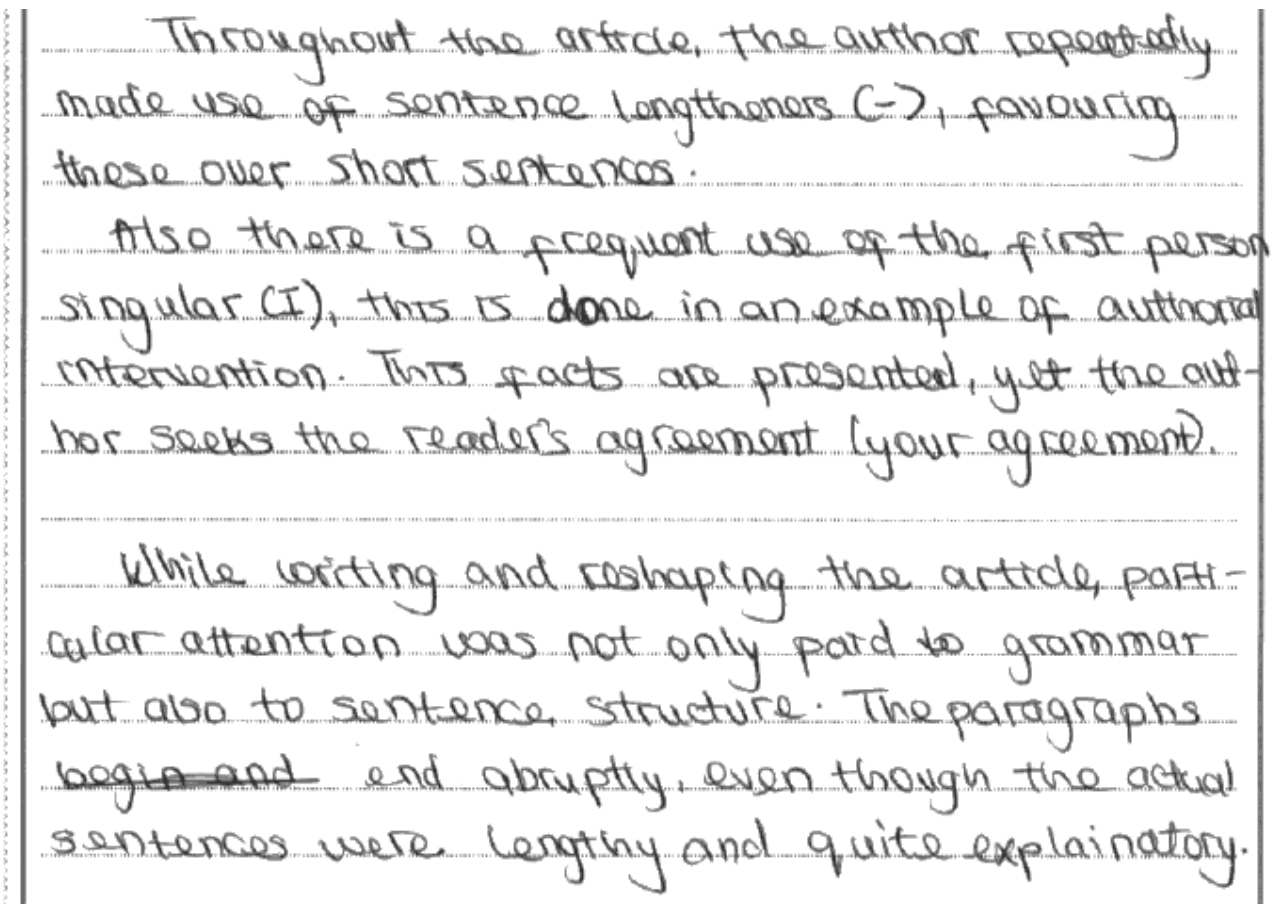 Throughout the article, the author repeatedly
made use of sentence lengtheners (-), favouring
these over short sentences.
Also there is a frequent use of the first person
singular (I), this is done in an example of authorial
intervention. This facts are presented, yet the aut-
hor seeks the reader's agreement (your agreement).
While writing and reshaping the article, parti-
cular attention was not only paid to grammar
but also to sentence structure. The paragraphs
begin and end abruptly, even though the actual
sentences were lengthy and quite explainatory.